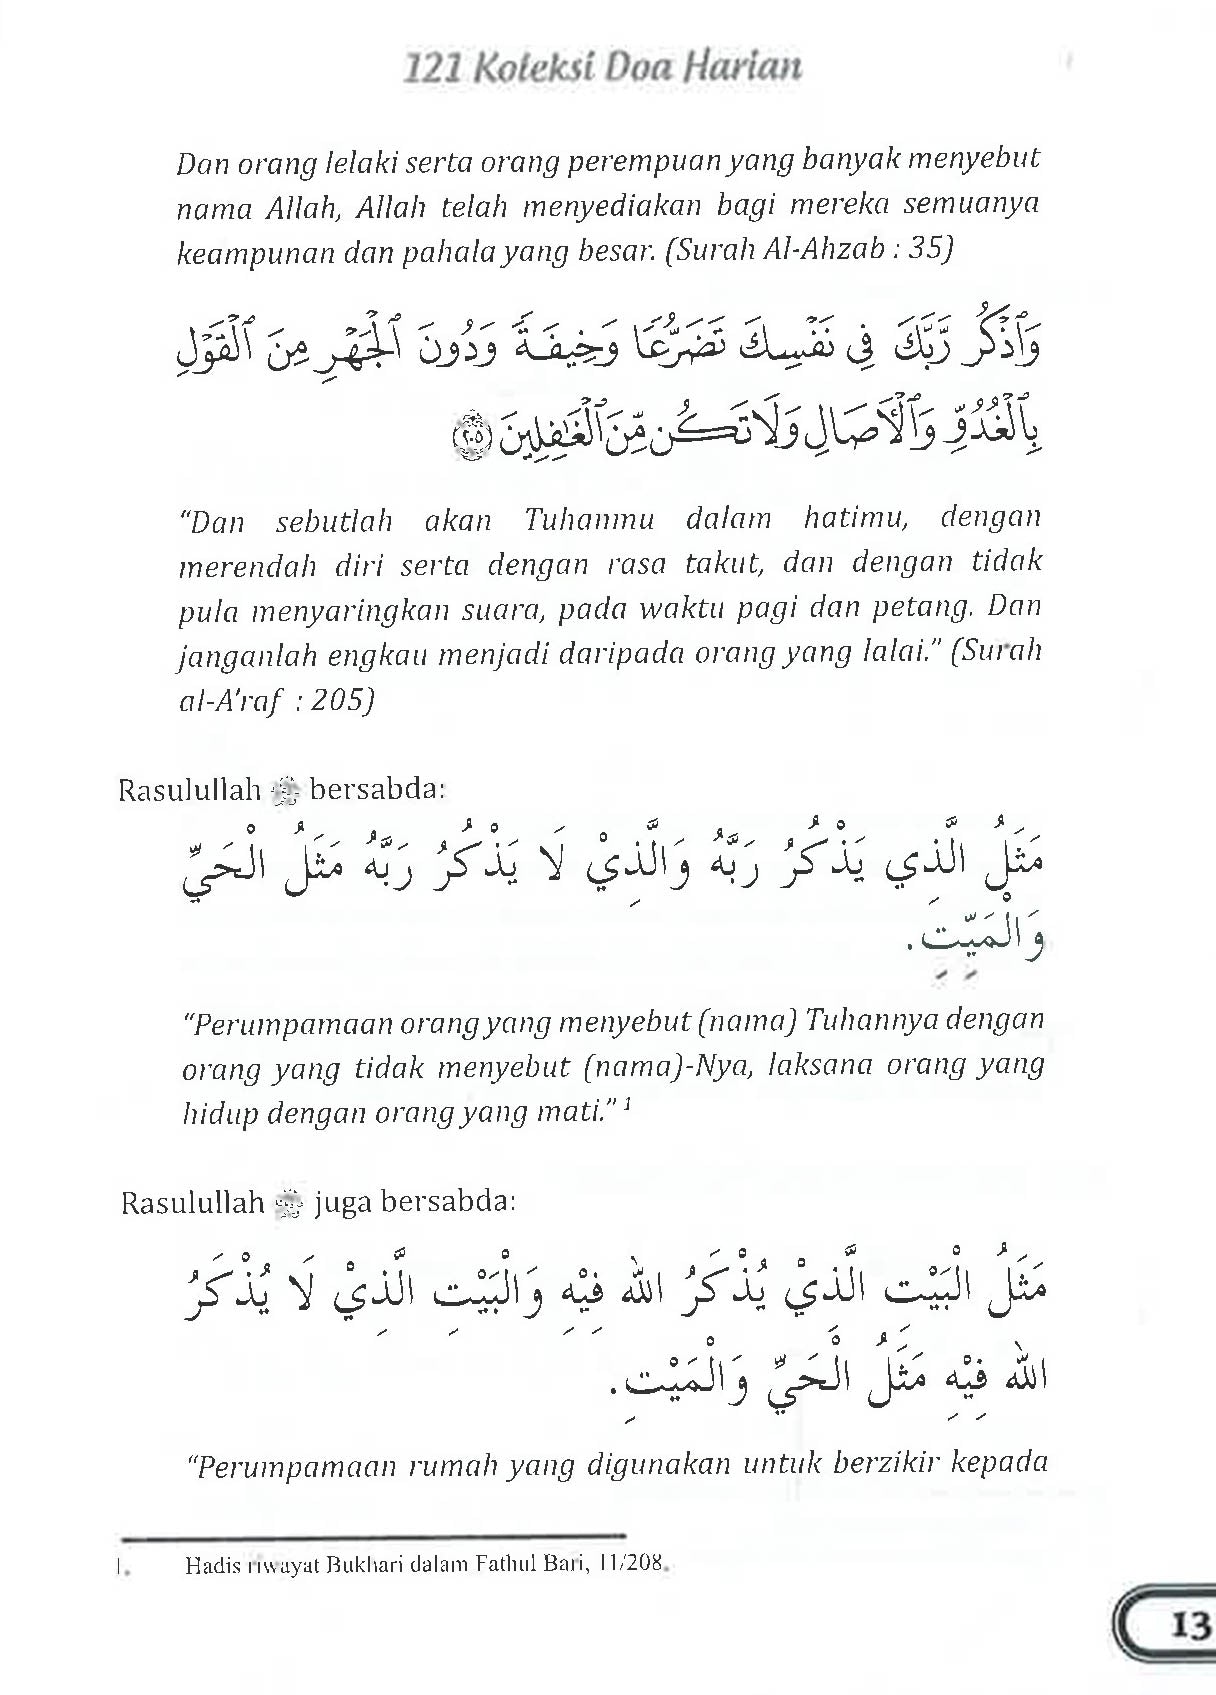 121 Koleksi Doa Harian
Dan orang lelaki serta orang perempuan yang banyak menyebut
nama Allah, Allah telah menyediakan bagi mereka semuanya
keampunan dan pahala yang besar. (Surah Al-Ahzab : 35)
وَٱذْكُر رَّبَّكَ فِى نَفْسِكَ تَضَرُّعًا وَخِيفَةً وَدُونَ ٱلْجَهْرِ مِنَ ٱلْقَوْلِ
بِٱلْغُدُوِّ وَٱلْأَصَالِ وَلَا تَكُن مِّنَ ٱلْغَٰفِلِينَ ٢٠٥
“Dan sebutlah akan Tuhanmu dalam hatimu, dengan
merendah diri serta dengan rasa takut, dan dengan tidak
pula menyaringkan suara, pada waktu pagi dan petang. Dan
janganlah engkau menjadi daripada orang yang lalai.” (Surah
al-A'raf : 205)
Rasulullah ﷺ bersabda:
مَثَلُ الَّذِي يَذْكُرُ رَبَّهُ وَالَّذِيْ لَا يَذْكُرُ رَبَّهُ مَثَلُ الْحَيِّ
وَالْمَيِّتِ.
“Perumpamaan orang yang menyebut (nama) Tuhannya dengan
orang yang tidak menyebut (nama)-Nya, laksana orang yang
hidup dengan orang yang mati.” 1
Rasulullah ﷺ juga bersabda:
مَثَلُ الْبَيْتِ الَّذِيْ يُذْكَرُ اللهُ فِيْهِ وَالْبَيْتِ الَّذِيْ لَا يُذْكَرُ
اللهُ فِيْهِ مَثَلُ الْحَيِّ وَالْمَيْتِ.
“Perumpamaan rumah yang digunakan untuk berzikir kepada
1. Hadis riwayat Bukhari dalam Fathul Bari, 11/208.
13